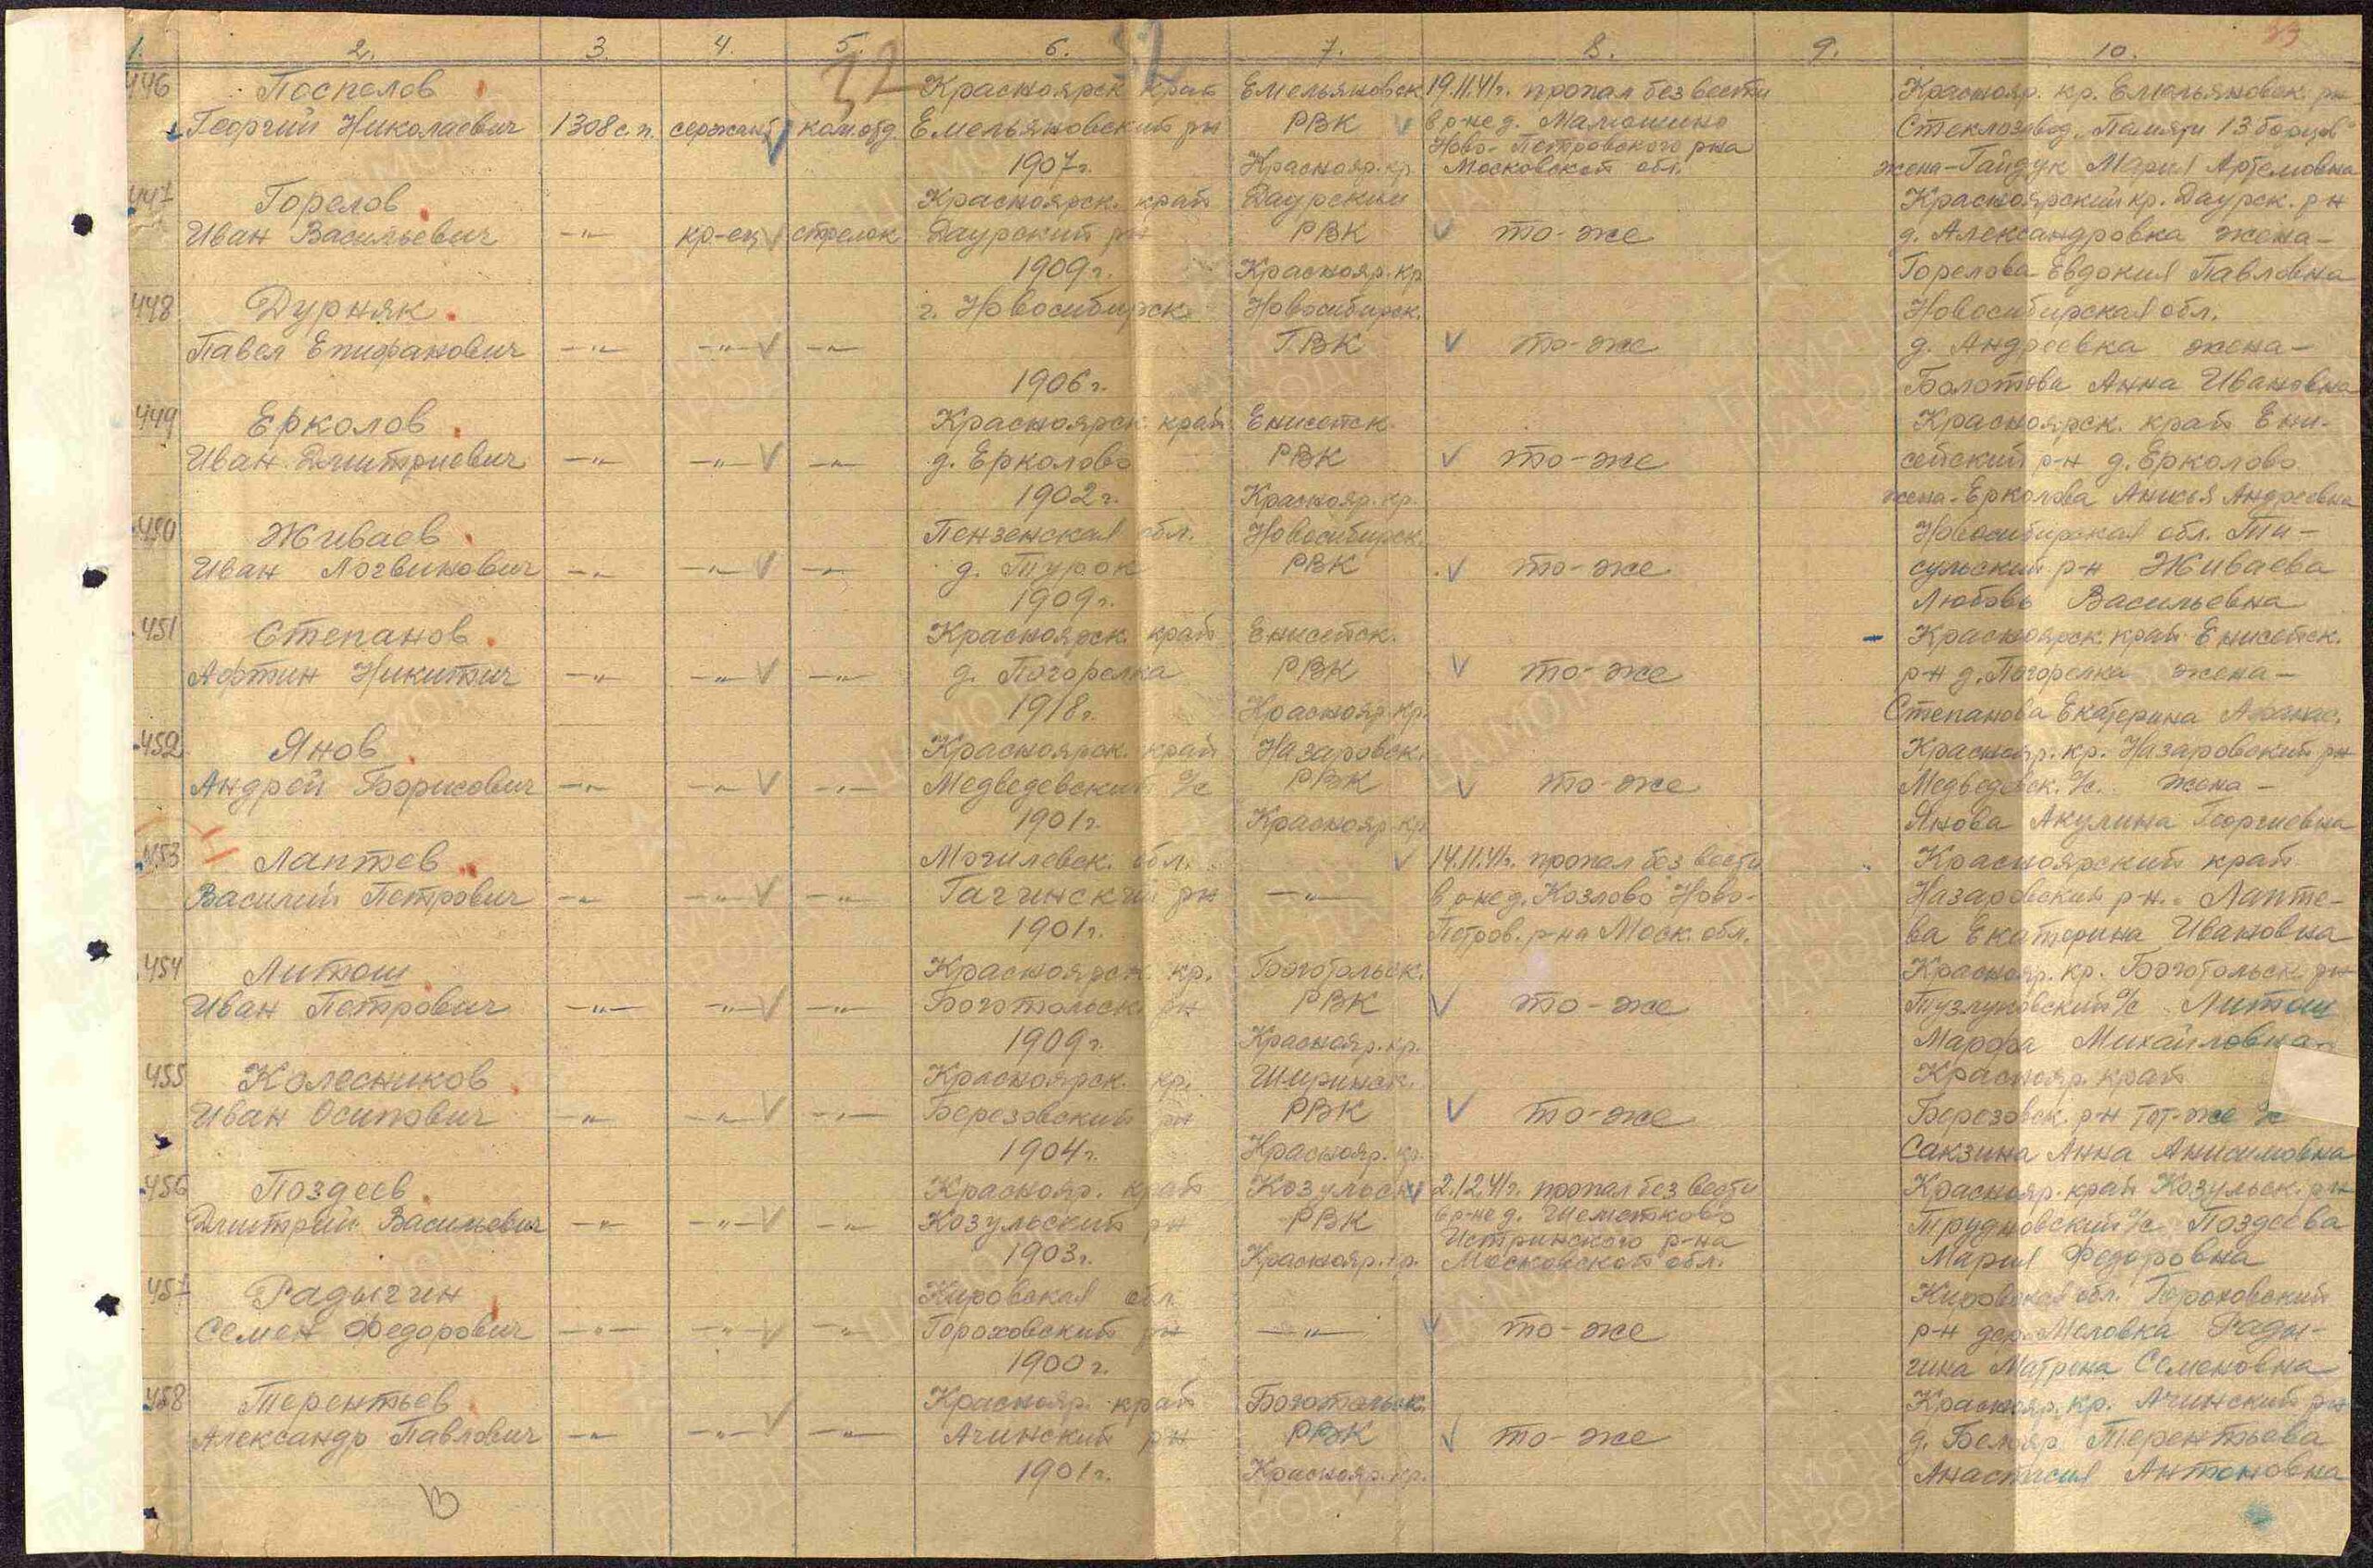 1. 2. 3. 4. 5. 6. 7. 8. 9. 10.
32
446 Поспелов Красноярск край Емельяновск 19.11.41г. пропал без вести Краснояр. кр. Емельяновск. рн
Георгий Николаевич 1308 с.п. сержант ком.отд. Емельяновский рн РВК в р-не д. Малюшино Стеклозавод "Памяти 13 борцов"
Ново-Петровского рна
1907г. Краснояр. кр. Московской обл. жена-Гайдук Мария Артемовна
447 Горелов Красноярск. край Даурский Красноярский кр. Даурск. рн
Иван Васильевич -"- кр-ец стрелок Даурский рн РВК то-же д. Александровка жена-
1909г. Краснояр. кр. Горелова Евдокия Павловна
448 Дурняк г. Новосибирск Новосибирск. Новосибирская обл.
Павел Епифанович -"- -"- -"- ГВК то-же д. Андреевка жена-
1906г. Болотова Анна Ивановна
449 Ерколов Красноярск. край Енисейск. Красноярск. край Ени-
Иван Дмитриевич -"- -"- -"- д. Ерколово РВК то-же сейский р-н д. Ерколово
1902г. Краснояр. кр. жена-Ерколова Анисья Андреевна
450 Живаев Пензенская обл. Новосибирск. Новосибирская обл. Ти-
Иван Логвинович -"- -"- -"- д. РВК то-же сульский р-н Живаева
1909г. Любовь Васильевна
451 Степанов Красноярск. край Енисейск. Красноярск. край Енисейск.
Афтин Никитич -"- -"- -"- д. Погорелка РВК то-же р-н д. Погорелка жена-
1918г. Краснояр. кр. Степанова Екатерина
452 Янов Красноярск. край Назаровск. Краснояр. кр. Назаровский рн
Андрей Борисович -"- -"- -"- Медведевский с/с РВК то-же Медведевск. с/с. жена-
1901г. Краснояр. кр. Янова Акулина Георгиевна
453 Лаптев Могилевск. обл. 14.11.41г. пропал без вести Красноярский край
Василий Петрович -"- -"- -"- рн -"- в р-не д. Козлово Ново- Назаровский р-н. Лапте-
1901г. Петров. р-на Моск. обл. ва Екатерина Ивановна
454 Литош Красноярск. кр. Боготольск. Краснояр. кр. Боготольск рн
Иван Петрович -"- -"- -"- Боготольск. рн РВК то-же с/с Литош
1909г. Краснояр. кр. Марфа Михайловна
455 Колесников Красноярск. кр. Ширинск. Краснояр. край
Иван Осипович -"- -"- -"- Березовский рн РВК то-же Березовск. р-н тот-же с/с
1904г. Краснояр. кр. Сакзина Анна Анисимовна
456 Поздеев Краснояр. край Козульск 2.12.41г. пропал без вести Краснояр. край Козульск. рн
Дмитрий Васильевич -"- -"- -"- Козульский рн РВК в р-не д. Шеметково Трудновский с/с Поздеева
Истринского р-на
1903г. Краснояр. кр. Московской обл. Мария Федоровна
457 Радыгин Кировская обл. Кировская обл. Гороховский
Семен Федорович -"- -"- -"- Гороховский рн -"- то-же р-н дер. Меловка Рады-
1900г. гина Матрена Семеновна
458 Терентьев Краснояр. край Боготольск. Краснояр. кр. Ачинский рн
Александр Павлович -"- -"- -"- Ачинский рн РВК то-же д. Белояр Терентьева
1901г. Краснояр. кр. Анастасия Антоновна
13